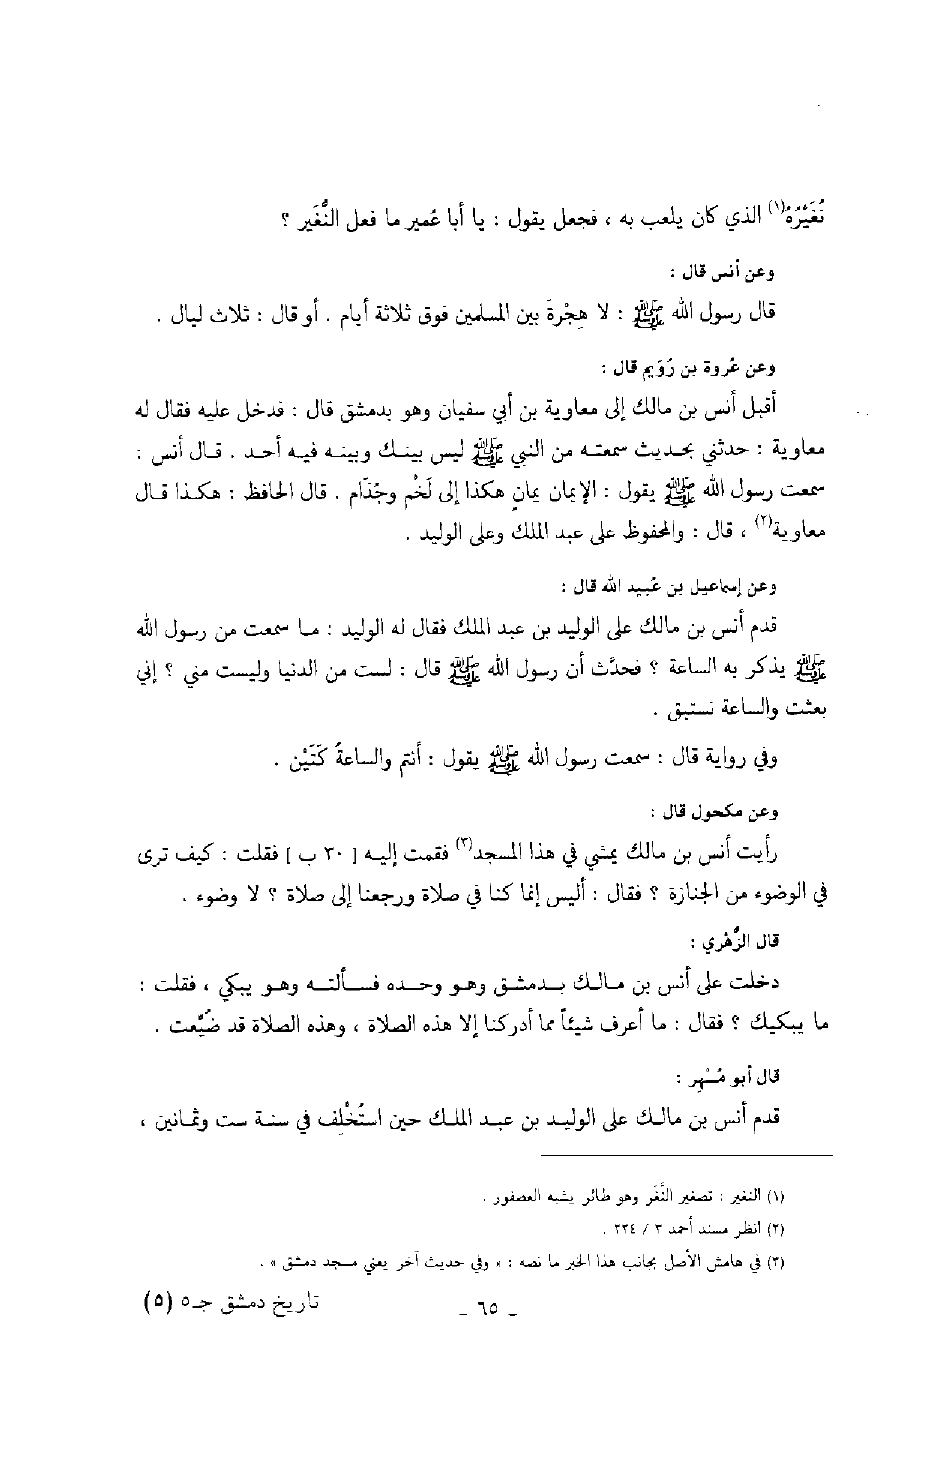 نُغَيْرُهُ(١) الذي كان يلعب به ، فجعل يقول : يا أبا عُمير ما فعل النُّغَير ؟
وعن أنس قال :
قال رسول الله ﷺ : لا هِجْرةَ بين المسلمين فوق ثلاثة أيام . أو قال : ثلاث ليال .
وعن عُروة بن رُوَيم قال :
أقبل أنس بن مالك إلى معاوية بن أبي سفيان وهو بدمشق قال : فدخل عليه فقال له
معاوية : حدثني بحديث سمعته من النبي ﷺ ليس بينك وبينه فيه أحد . قال أنس :
سمعت رسول الله ﷺ يقول : الإيمان يمانٍ هكذا إلى لَخْم وجُذَام . قال الحافظ : هكذا قال
معاوية(٢) ، قال : والمحفوظ على عبد الملك وعلى الوليد .
وعن إسماعيل بن عُبيد الله قال :
قدم أنس بن مالك على الوليد بن عبد الملك فقال له الوليد : ما سمعت من رسول الله
ﷺ يذكر به الساعة ؟ فحدَّث أن رسول الله ﷺ قال : لست من الدنيا وليست مني ؟ إني
بعثت والساعة نستبق .
وفي رواية قال : سمعت رسول الله ﷺ يقول : أنتم والساعةُ كَتَيْن .
وعن مكحول قال :
رأيت أنس بن مالك يمشي في هذا المسجد(٣) فقمت إليه [ ٣٠ ب ] فقلت : كيف ترى
في الوضوء من الجنازة ؟ فقال : أليس إنما كنا في صلاة ورجعنا إلى صلاة ؟ لا وضوء .
قال الزُّهْري :
دخلت على أنس بن مالك بدمشق وهو وحده فسألته وهو يبكي ، فقلت :
ما يبكيك ؟ فقال : ما أعرف شيئاً مما أدركنا إلا هذه الصلاة ، وهذه الصلاة قد ضُيِّعت .
قال أبو مُسْهِر :
قدم أنس بن مالك على الوليد بن عبد الملك حين استُخْلِف في سنة ست وثمانين ،
(١) النغير : تصغير النُّغَر وهو طائر يشبه العصفور .
(٢) انظر مسند أحمد ٣ / ٢٢٤ .
(٣) في هامش الأصل بجانب هذا الخبر ما نصه : « وفي حديث آخر يعني مسجد دمشق » .
ـ ٦٥ ـ تاريخ دمشق جـ٥ (٥)